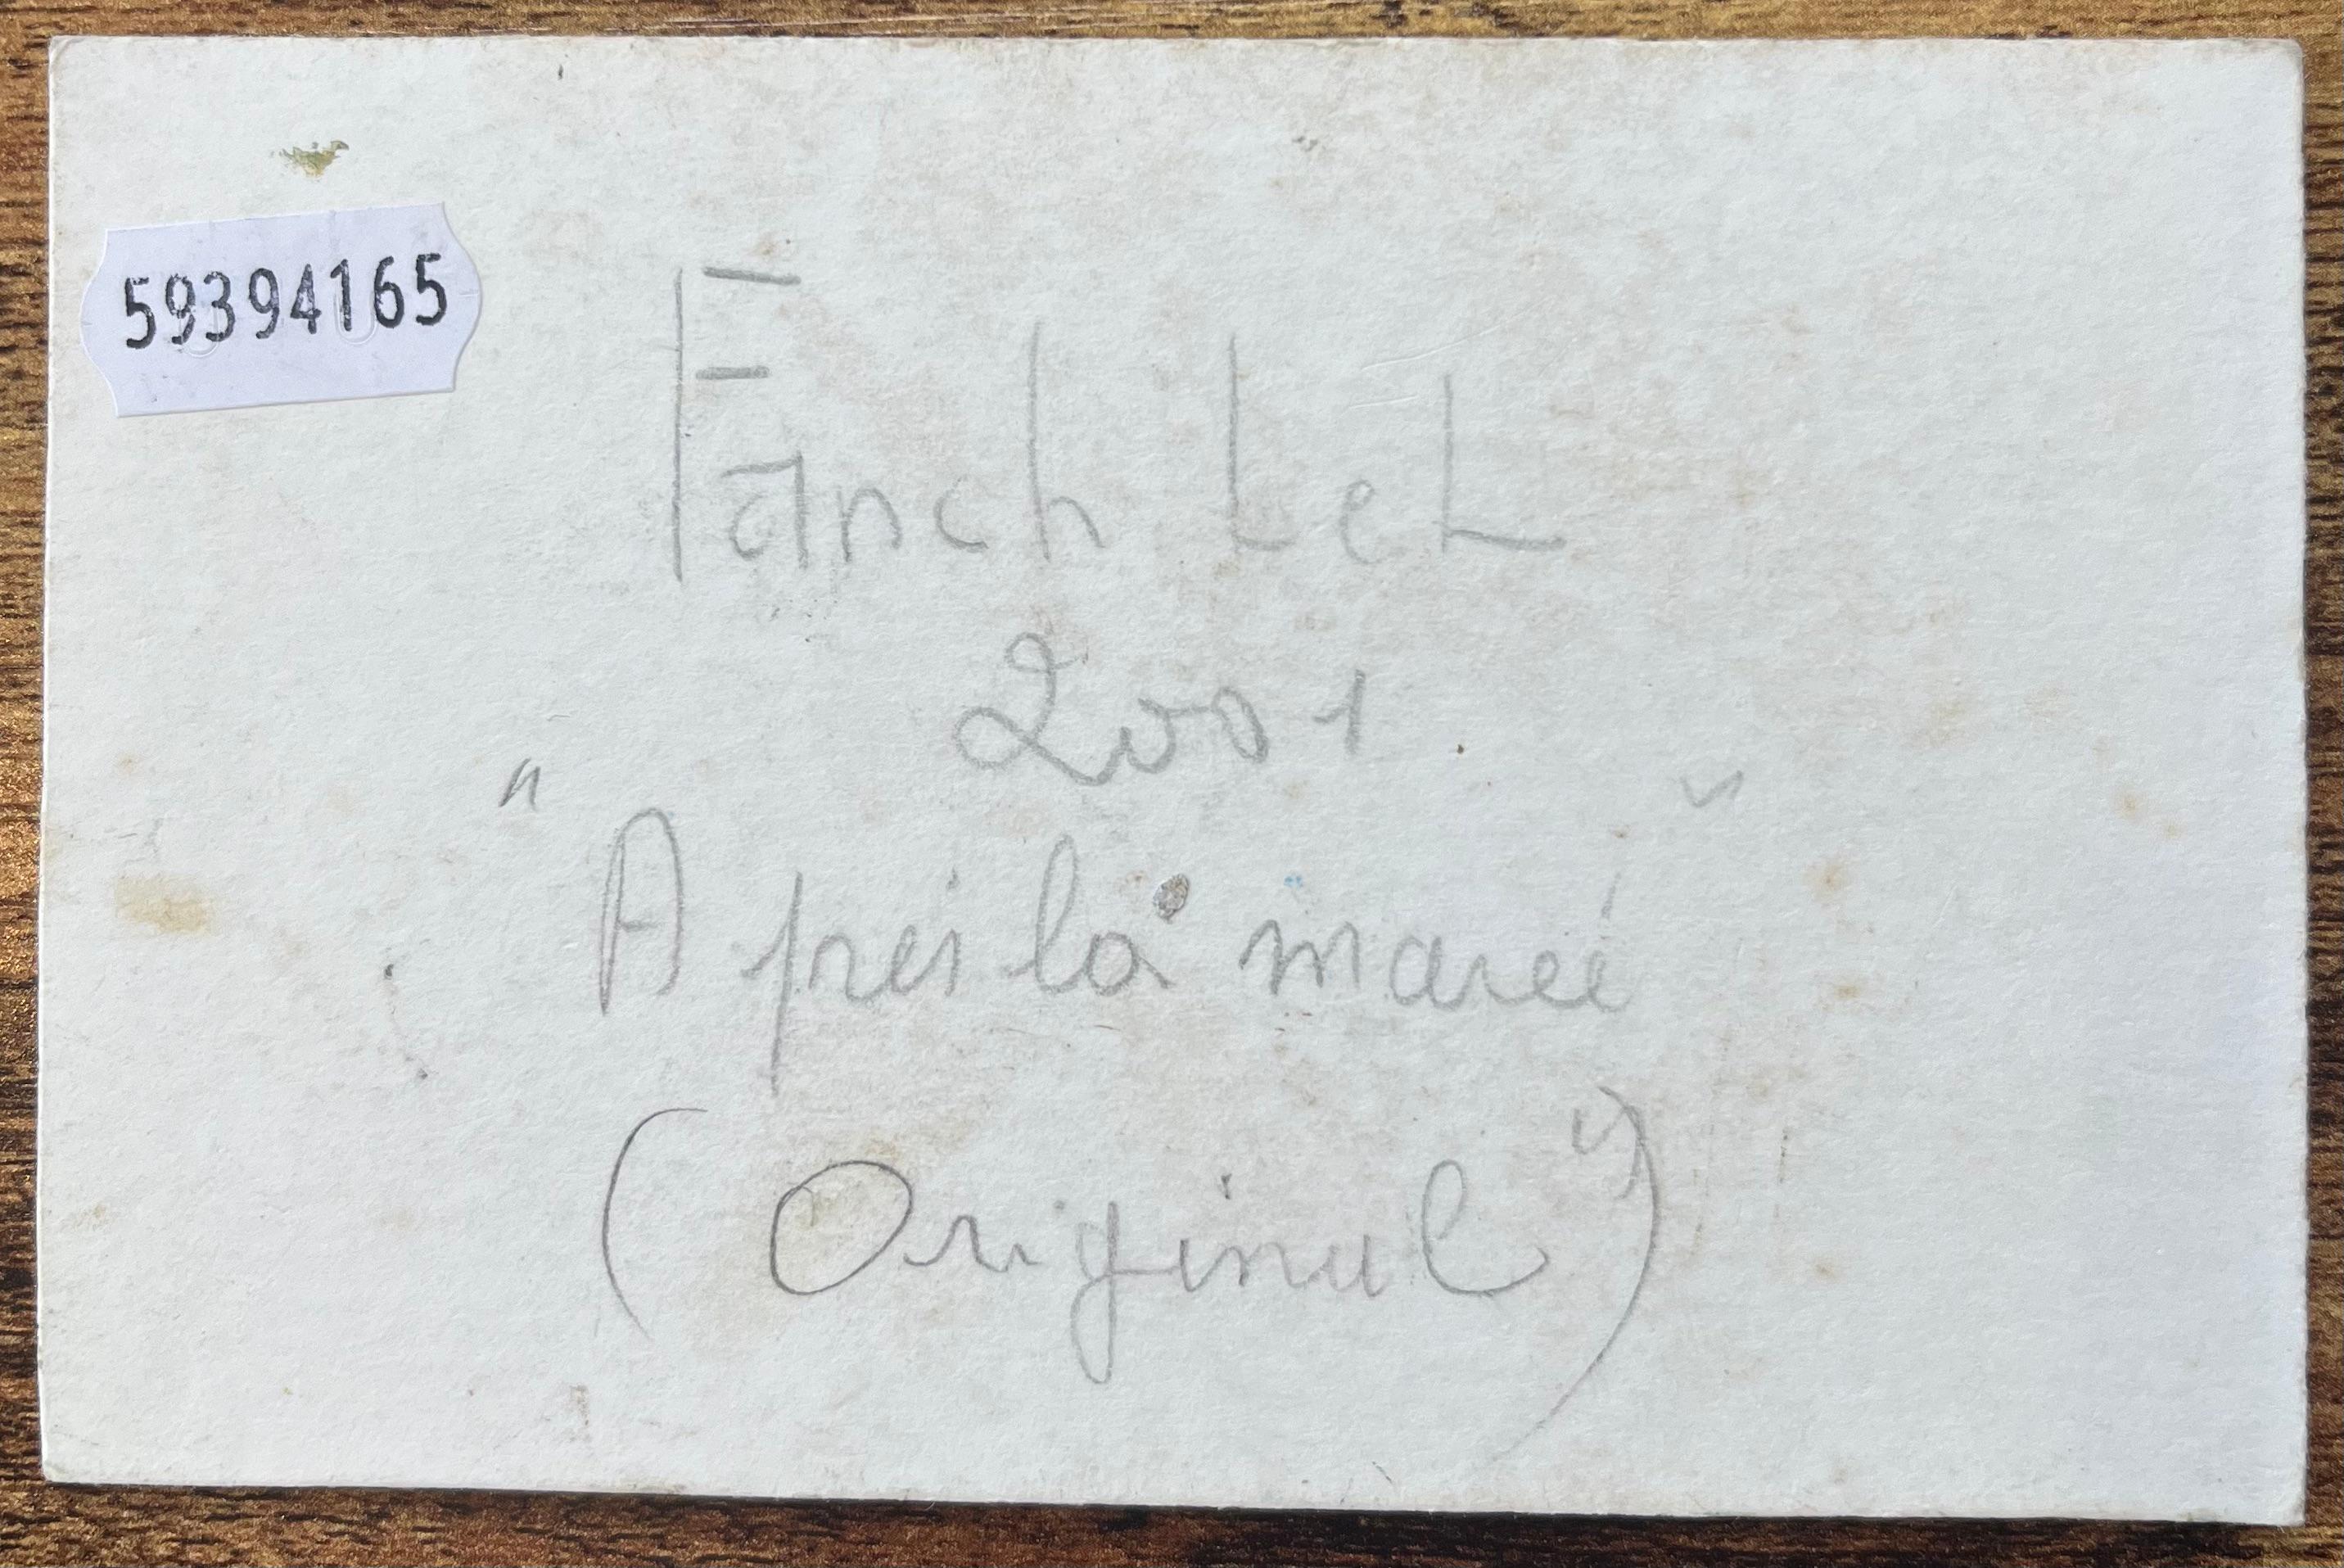 59394165
Fanch LeL
2001
"Aprés la marée"
(Original)